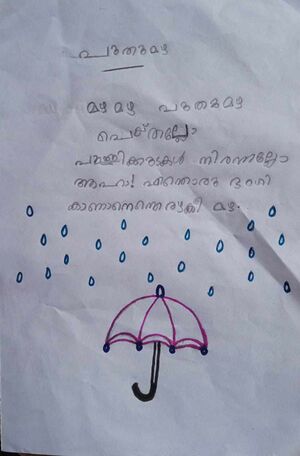 പുതുമഴ
മഴ മഴ പുതുമഴ
പെയ്തല്ലോ
പുള്ളിക്കുടകൾ നിരന്നല്ലോ
ആഹാ! എന്തൊരു ഭംഗി
കാണാനെന്തൊരഴകീ മഴ.